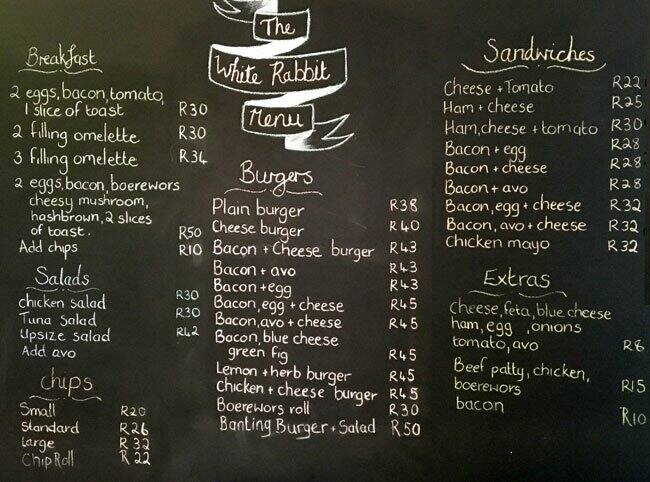 The
White Rabbit
Menu
Breakfast
2 eggs, bacon, tomato,
1 slice of toast R30
2 filling omelette R30
3 filling omelette R34
2 eggs, bacon, boerewors
cheesy mushroom,
hashbrown, 2 slices
of toast. R50
Add chips R10
Salads
chicken salad R30
Tuna salad R30
Upsize salad R42
Add avo
Chips
Small R20
Standard R26
Large R32
Chip Roll R22
Burgers
Plain burger R38
Cheese burger R40
Bacon + Cheese burger R43
Bacon + avo R43
Bacon + egg R43
Bacon, egg + cheese R45
Bacon, avo + cheese R45
Bacon, blue cheese
green fig R45
Lemon + herb burger R45
Chicken + cheese burger R45
Boerewors roll R30
Banting Burger + Salad R50
Sandwiches
Cheese + Tomato R22
Ham + cheese R25
Ham, cheese + tomato R30
Bacon + egg R28
Bacon + cheese R28
Bacon + avo R28
Bacon, egg + cheese R32
Bacon, avo + cheese R32
Chicken mayo R32
Extras
Cheese, feta, blue cheese
ham, egg, onions
tomato, avo R8
Beef patty, chicken,
boerewors R15
bacon R10